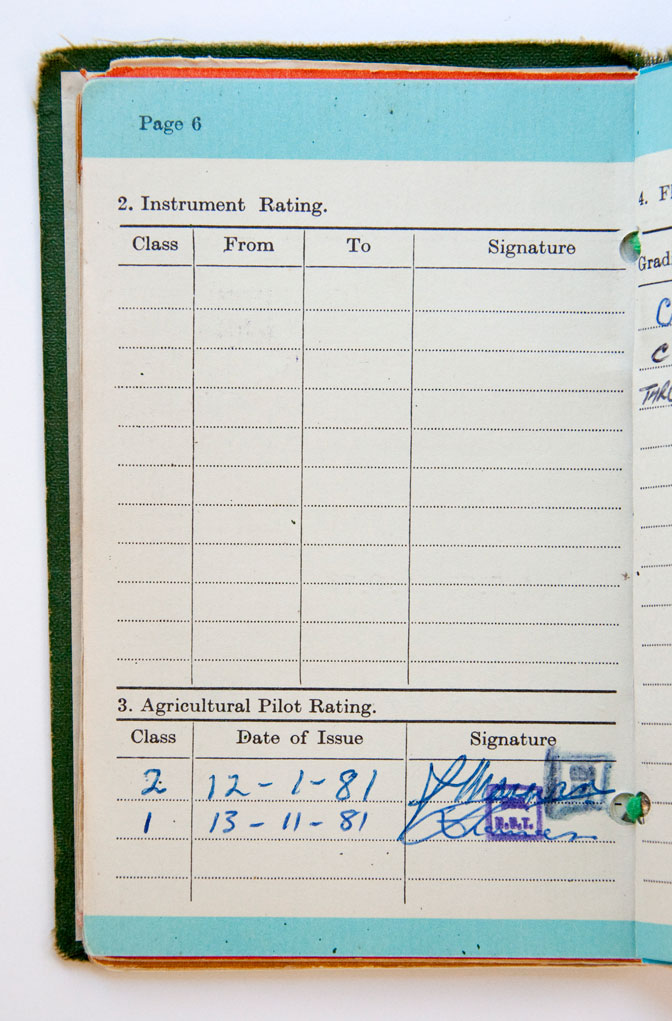 Page 6
2. Instrument Rating.
Class From To Signature
3. Agricultural Pilot Rating.
Class Date of Issue Signature
2 12-1-81
1 13-11-81
4. Fl
Grad
C
THRO